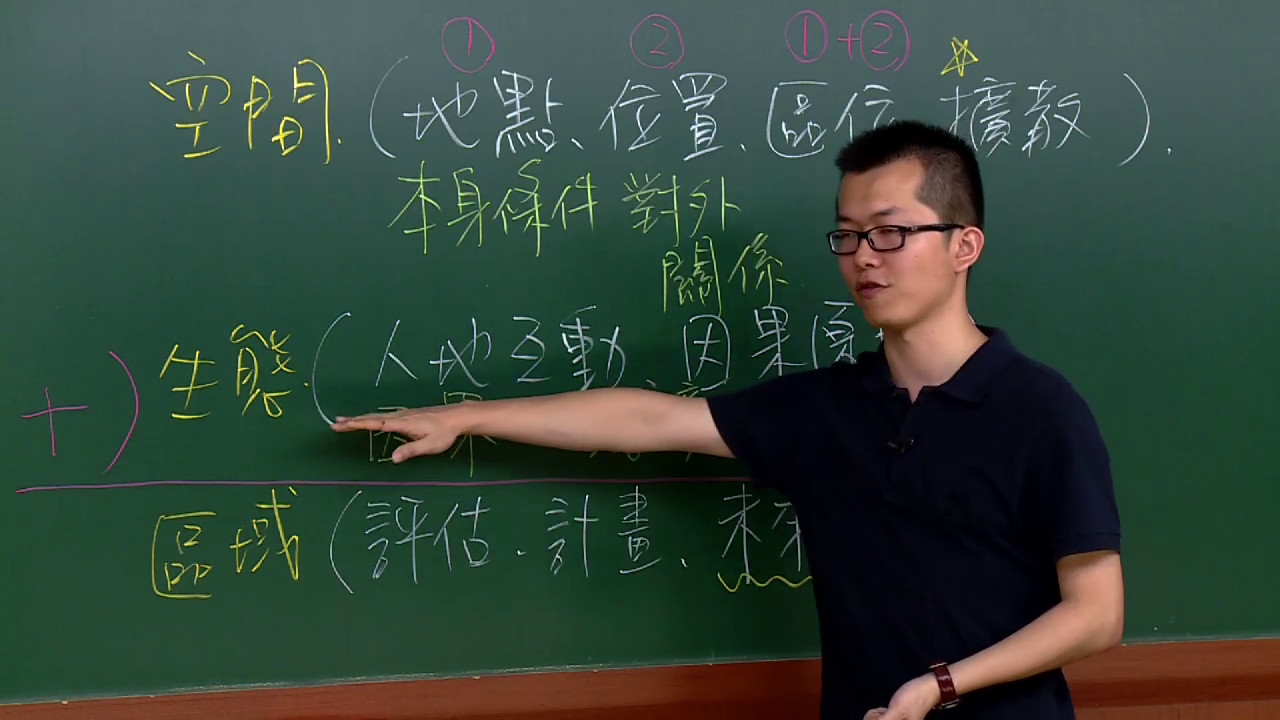 ① ② ①+②
空間.(地點、位置、區位 擴散).
本身條件 對外
關係
+) 生態.(人地互動、因果
因果
區域(評估.計畫、未來